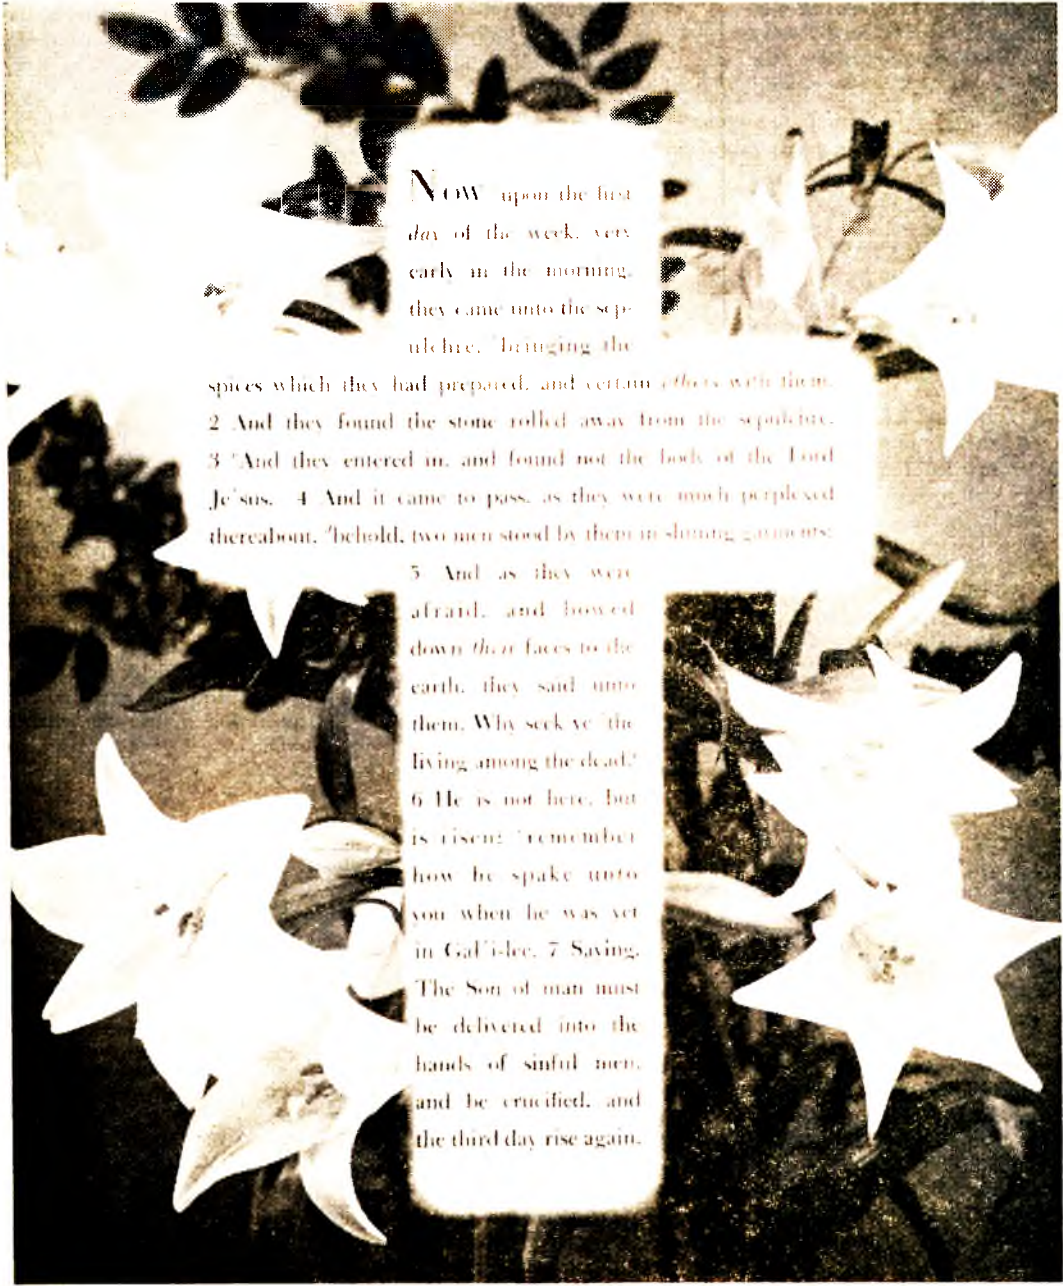 NOW upon the first
day of the week, very
early in the morning,
they came unto the sep-
ulchre, bringing the
spices which they had prepared, and certain others with them.
2 And they found the stone rolled away from the sepulchre.
3 And they entered in, and found not the body of the Lord
Je´sus. 4 And it came to pass, as they were much perplexed
thereabout, behold, two men stood by them in shining garments:
5 And as they were
afraid, and bowed
down their faces to the
earth, they said unto
them, Why seek ye the
living among the dead?
6 He is not here, but
is risen: remember
how he spake unto
you when he was yet
in Gal´i-lee, 7 Saying,
The Son of man must
be delivered into the
hands of sinful men,
and be crucified, and
the third day rise again.